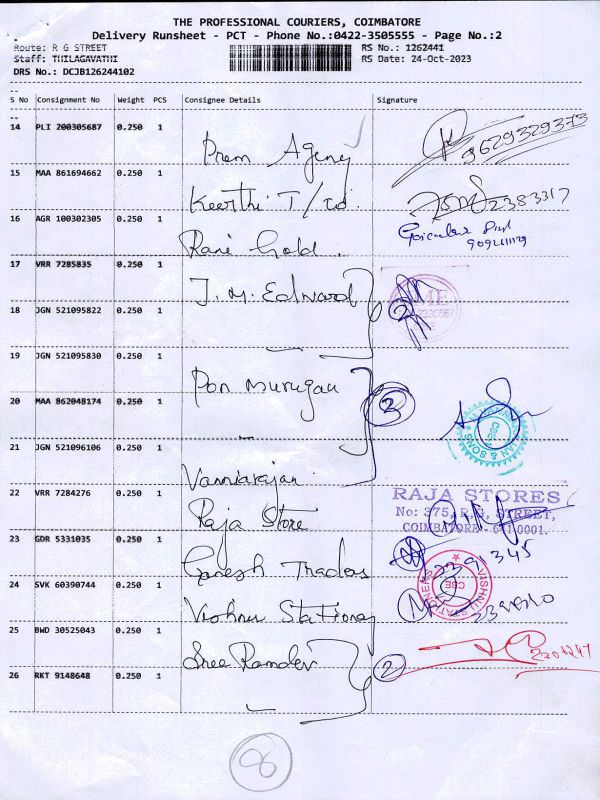 THE PROFESSIONAL COURIERS, COIMBATORE
Delivery Runsheet - PCT - Phone No.:0422-3505555 - Page No.:2
Route: R G STREET
RS No.: 1262441
Staff: THILAGAVATHI
RS Date: 24-Oct-2023
DRS No.: DCJB126244102
S No Consignment No Weight PCS Consignee Details Signature
14 PLI 200305687 0.250 1
Prem Agency 9629329373
15 MAA 861694662 0.250 1
Keerthi T/
2383317
16 AGR 100302305 0.250 1
Rani Gold.
17 VRR 7285835 0.250 1
J. M. Edward
2
18 JGN 521095822 0.250 1
19 JGN 521095830 0.250 1
Pon murugan
3
20 MAA 862048174 0.250 1
& SONS
CBE
21 JGN 521096106 0.250 1
Vanniarajan
22 VRR 7284276 0.250 1
Raja Store
RAJA STORES
No: 375, R.G. STREET,
COIMBATORE - 641 0001.
23 GDR 5331035 0.250 1
Ganesh Traders 2391345
24 SVK 60390744 0.250 1
Vishnu Stationery
VISHNU STATIONERY
CBE
25 BWD 30525043 0.250 1
Sree Ramdev
2
26 RKT 9148648 0.250 1
8